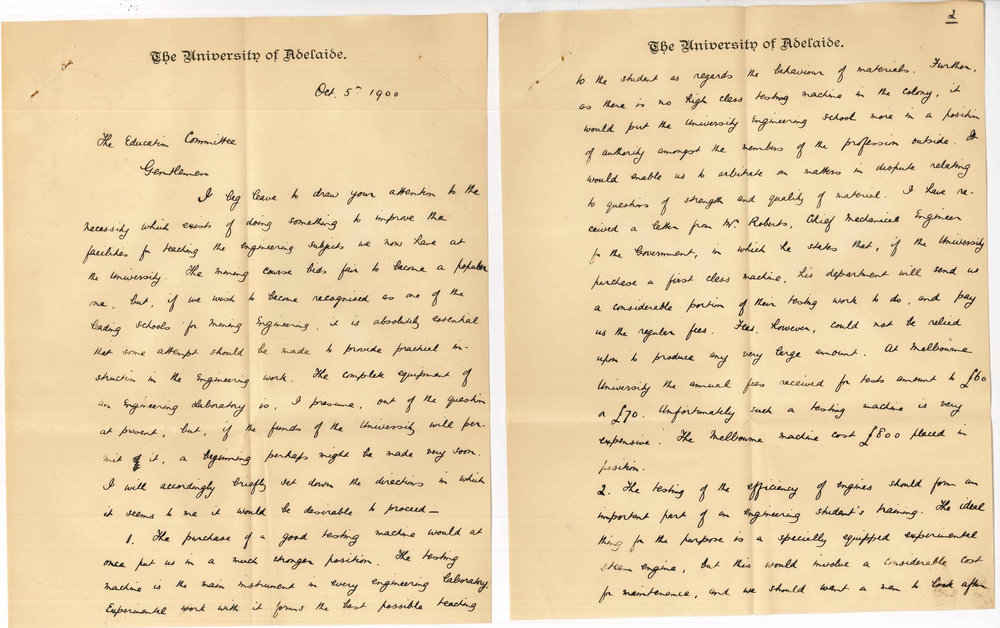 The University of Adelaide.
Oct 5 1900
The Education Committee
Gentlemen
I beg leave to draw your attention to the
necessity which exists of doing something to improve the
facilities for teaching the engineering subjects we now have at
the University. The mining course bids fair to become a popular
one, but, if we wish to become recognised as one of the
leading schools for Mining Engineering, it is absolutely essential
that some attempt should be made to provide practical in-
struction in the Engineering work. The complete equipment of
an Engineering Laboratory is, I presume, out of the question
at present, but, if the funds of the University will per-
mit of it, a beginning perhaps might be made very soon.
I will accordingly briefly set down the directions in which
it seems to me it would be desirable to proceed—
1. The purchase of a good testing machine would at
once put us in a much stronger position. The testing
machine is the main instrument in every engineering laboratory.
Experimental work with it forms the best possible teaching
2
The University of Adelaide.
to the student as regards the behaviour of materials. Further,
as there is no high class testing machine in the colony, it
would put the University Engineering school more in a position
of authority amongst the members of the profession outside. It
would enable us to arbitrate on matters in dispute relating
to questions of strength and quality of material. I have re-
ceived a letter from Mr. Roberts, Chief Mechanical Engineer
for the Government, in which he states that, if the University
purchase a first class machine, his department will send us
a considerable portion of their testing work to do, and pay
us the regular fees. Fees, however, could not be relied
upon to produce any very large amount. At Melbourne
University the annual fees received for tests amount to £60
or £70. Unfortunately such a testing machine is very
expensive. The Melbourne machine cost £800 placed in
position.
2. The testing of the efficiency of engines should form an
important part of an engineering student's training. The ideal
thing for the purpose is a specially equipped experimental
steam engine, but this would involve a considerable cost
for maintenance, and we should want a man to look after